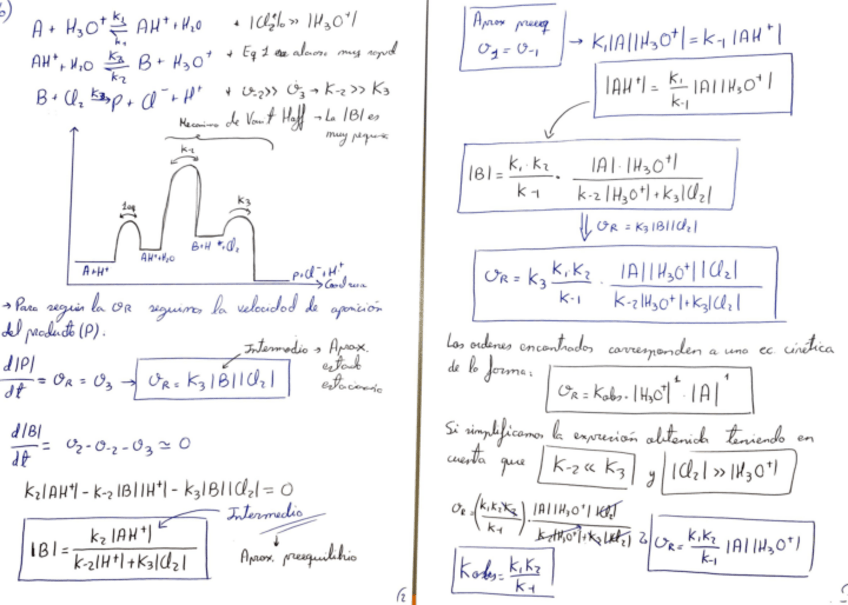 b)
A + H₃O⁺ ⇌ AH⁺ + H₂O
k₁
k₋₁
+ |Cl₂| >> |H₃O⁺|
AH⁺ + H₂O ⇌ B + H₃O⁺
k₂
k₋₂
+ Eq 1 se alcanza muy rapid
B + Cl₂ → P + Cl⁻ + H⁺
k₃
+ v₋₂ >> v₃ → k₋₂ >> k₃
Mecanismo de Van't Hoff → La |B| es
muy pequeña
k₋₂
k₃
A+H⁺
AH⁺+H₂O
B+H⁺+Cl₂
P+Cl⁻+H⁺
→ Para seguir la vR seguimos la velocidad de aparición
del producto (P).
Intermedio → Aprox.
estado
estacionario
d|P|/dt = vR = v₃ → vR = k₃|B||Cl₂|
d|B|/dt = v₂ - v₋₂ - v₃ ≃ 0
k₂|AH⁺| - k₋₂|B||H⁺| - k₃|B||Cl₂| = 0
|B| = k₂|AH⁺| / k₋₂|H⁺| + k₃|Cl₂|
Intermedio
Aprox. preequilibrio
Aprox preeq
v₁ = v₋₁
→ k₁|A||H₃O⁺| = k₋₁|AH⁺|
|AH⁺| = k₁/k₋₁ |A||H₃O⁺|
|B| = k₁·k₂/k₋₁ · |A|·|H₃O⁺| / k₋₂|H₃O⁺| + k₃|Cl₂|
vR = k₃|B||Cl₂|
vR = k₃ k₁k₂/k₋₁ · |A||H₃O⁺||Cl₂| / k₋₂|H₃O⁺| + k₃|Cl₂|
Los ordenes encontrados corresponden a una ec. cinética
de la forma:
vR = kobs · |H₃O⁺|¹ · |A|¹
Si simplificamos la expresión obtenida teniendo en
cuenta que k₋₂ << k₃ y |Cl₂| >> |H₃O⁺|
vR = (k₁k₂k₃/k₋₁) · |A||H₃O⁺||Cl₂| / k₋₂|H₃O⁺| + k₃|Cl₂| vR = k₁k₂/k₋₁ |A||H₃O⁺|
kobs = k₁k₂/k₋₁